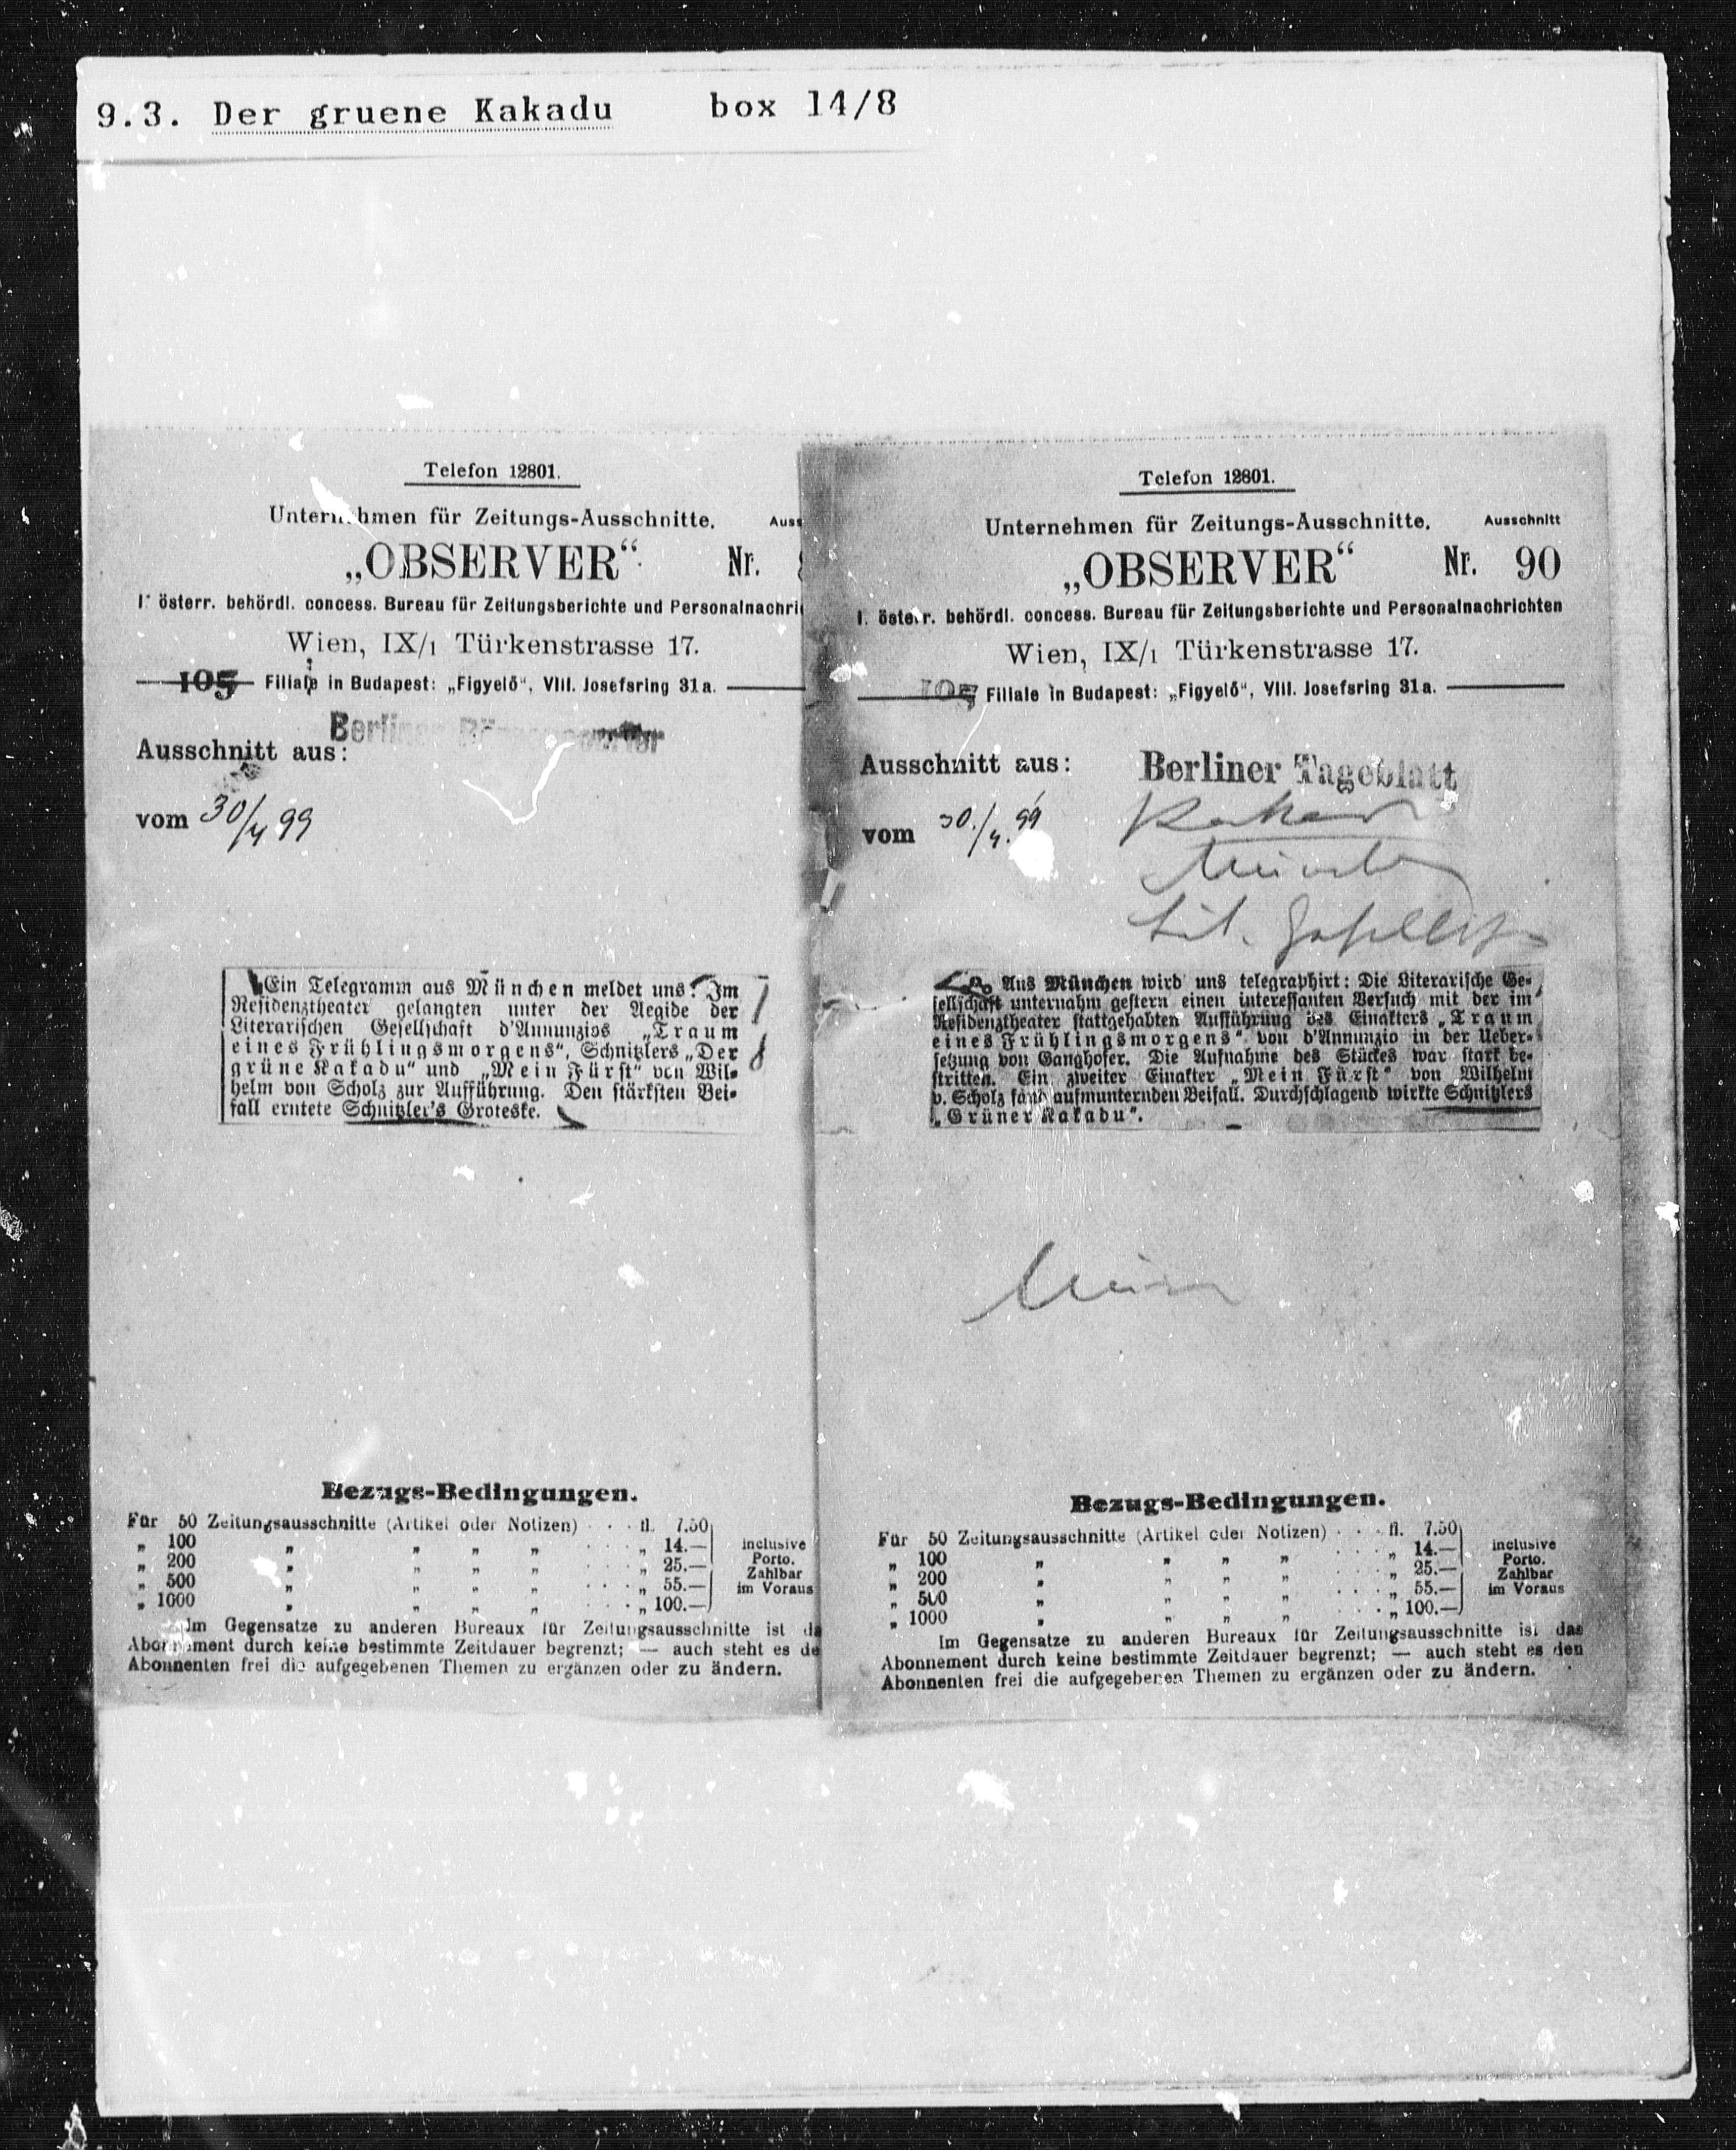 9.3. Der gruene Kakadu box 14/8
Telefon 12801.
Unternehmen für Zeitungs-Ausschnitte.
„OBSERVER“ Nr.
I. österr. behördl. concess. Bureau für Zeitungsberichte und Personalnachri
Wien, IX/1 Türkenstrasse 17.
105 Filiale in Budapest: „Figyelő“, VIII. Josefsring 31a.
Berliner
Ausschnitt aus:
vom 30/4 99
Ein Telegramm aus München meldet uns: Im
Residenztheater gelangten unter der Aegide der
Literarischen Gesellschaft d'Annunzios „Traum
eines Frühlingsmorgens“, Schnitzlers „Der
grüne Kakadu“ und „Mein Fürst“ von Wil-
helm von Scholz zur Aufführung. Den stärksten Bei-
fall erntete Schnitzler's Groteske.
Bezugs-Bedingungen.
Für 50 Zeitungsausschnitte (Artikel oder Notizen) . . . fl. 7.50
„ 100 „ „ „ „ . . . „ 14.— inclusive
„ 200 „ „ „ „ . . . „ 25.— Porto.
„ 500 „ „ „ „ . . . „ 55.— Zahlbar
„ 1000 „ „ „ „ . . . „ 100.— im Voraus
Im Gegensatze zu anderen Bureaux für Zeitungsausschnitte ist da
Abonnement durch keine bestimmte Zeitdauer begrenzt; — auch steht es de
Abonnenten frei die aufgegebenen Themen zu ergänzen oder zu ändern.
Telefon 12801.
Unternehmen für Zeitungs-Ausschnitte. Ausschnitt
„OBSERVER“ Nr. 90
I. österr. behördl. concess. Bureau für Zeitungsberichte und Personalnachrichten
Wien, IX/1 Türkenstrasse 17.
105 Filiale in Budapest: „Figyelő“, VIII. Josefsring 31a.
Ausschnitt aus: Berliner Tageblatt
vom 30./4. 99
Kakadu
München
Lit. Gesellsch
Aus München wird uns telegraphirt: Die Literarische Ge-
sellschaft unternahm gestern einen interessanten Versuch mit der im
Residenztheater stattgehabten Aufführung des Einakters „Traum
eines Frühlingsmorgens“ von d'Annunzio in der Ueber-
setzung von Ganghofer. Die Aufnahme des Stückes war stark be-
stritten. Ein zweiter Einakter „Mein Fürst“ von Wilhelm
v. Scholz fand aufmunternden Beifall. Durchschlagend wirkte Schnitzlers
„Grüner Kakadu“.
Bezugs-Bedingungen.
Für 50 Zeitungsausschnitte (Artikel oder Notizen) . . . fl. 7.50
„ 100 „ „ „ „ . . . „ 14.— inclusive
„ 200 „ „ „ „ . . . „ 25.— Porto.
„ 500 „ „ „ „ . . . „ 55.— Zahlbar
„ 1000 „ „ „ „ . . . „ 100.— im Voraus
Im Gegensatze zu anderen Bureaux für Zeitungsausschnitte ist das
Abonnement durch keine bestimmte Zeitdauer begrenzt; — auch steht es den
Abonnenten frei die aufgegebenen Themen zu ergänzen oder zu ändern.